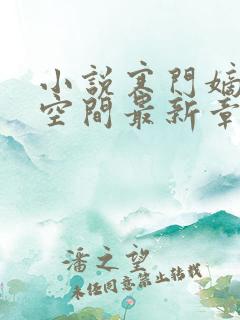 小说寒门嫡
空间最新章
潘之望
未经同意禁止转载